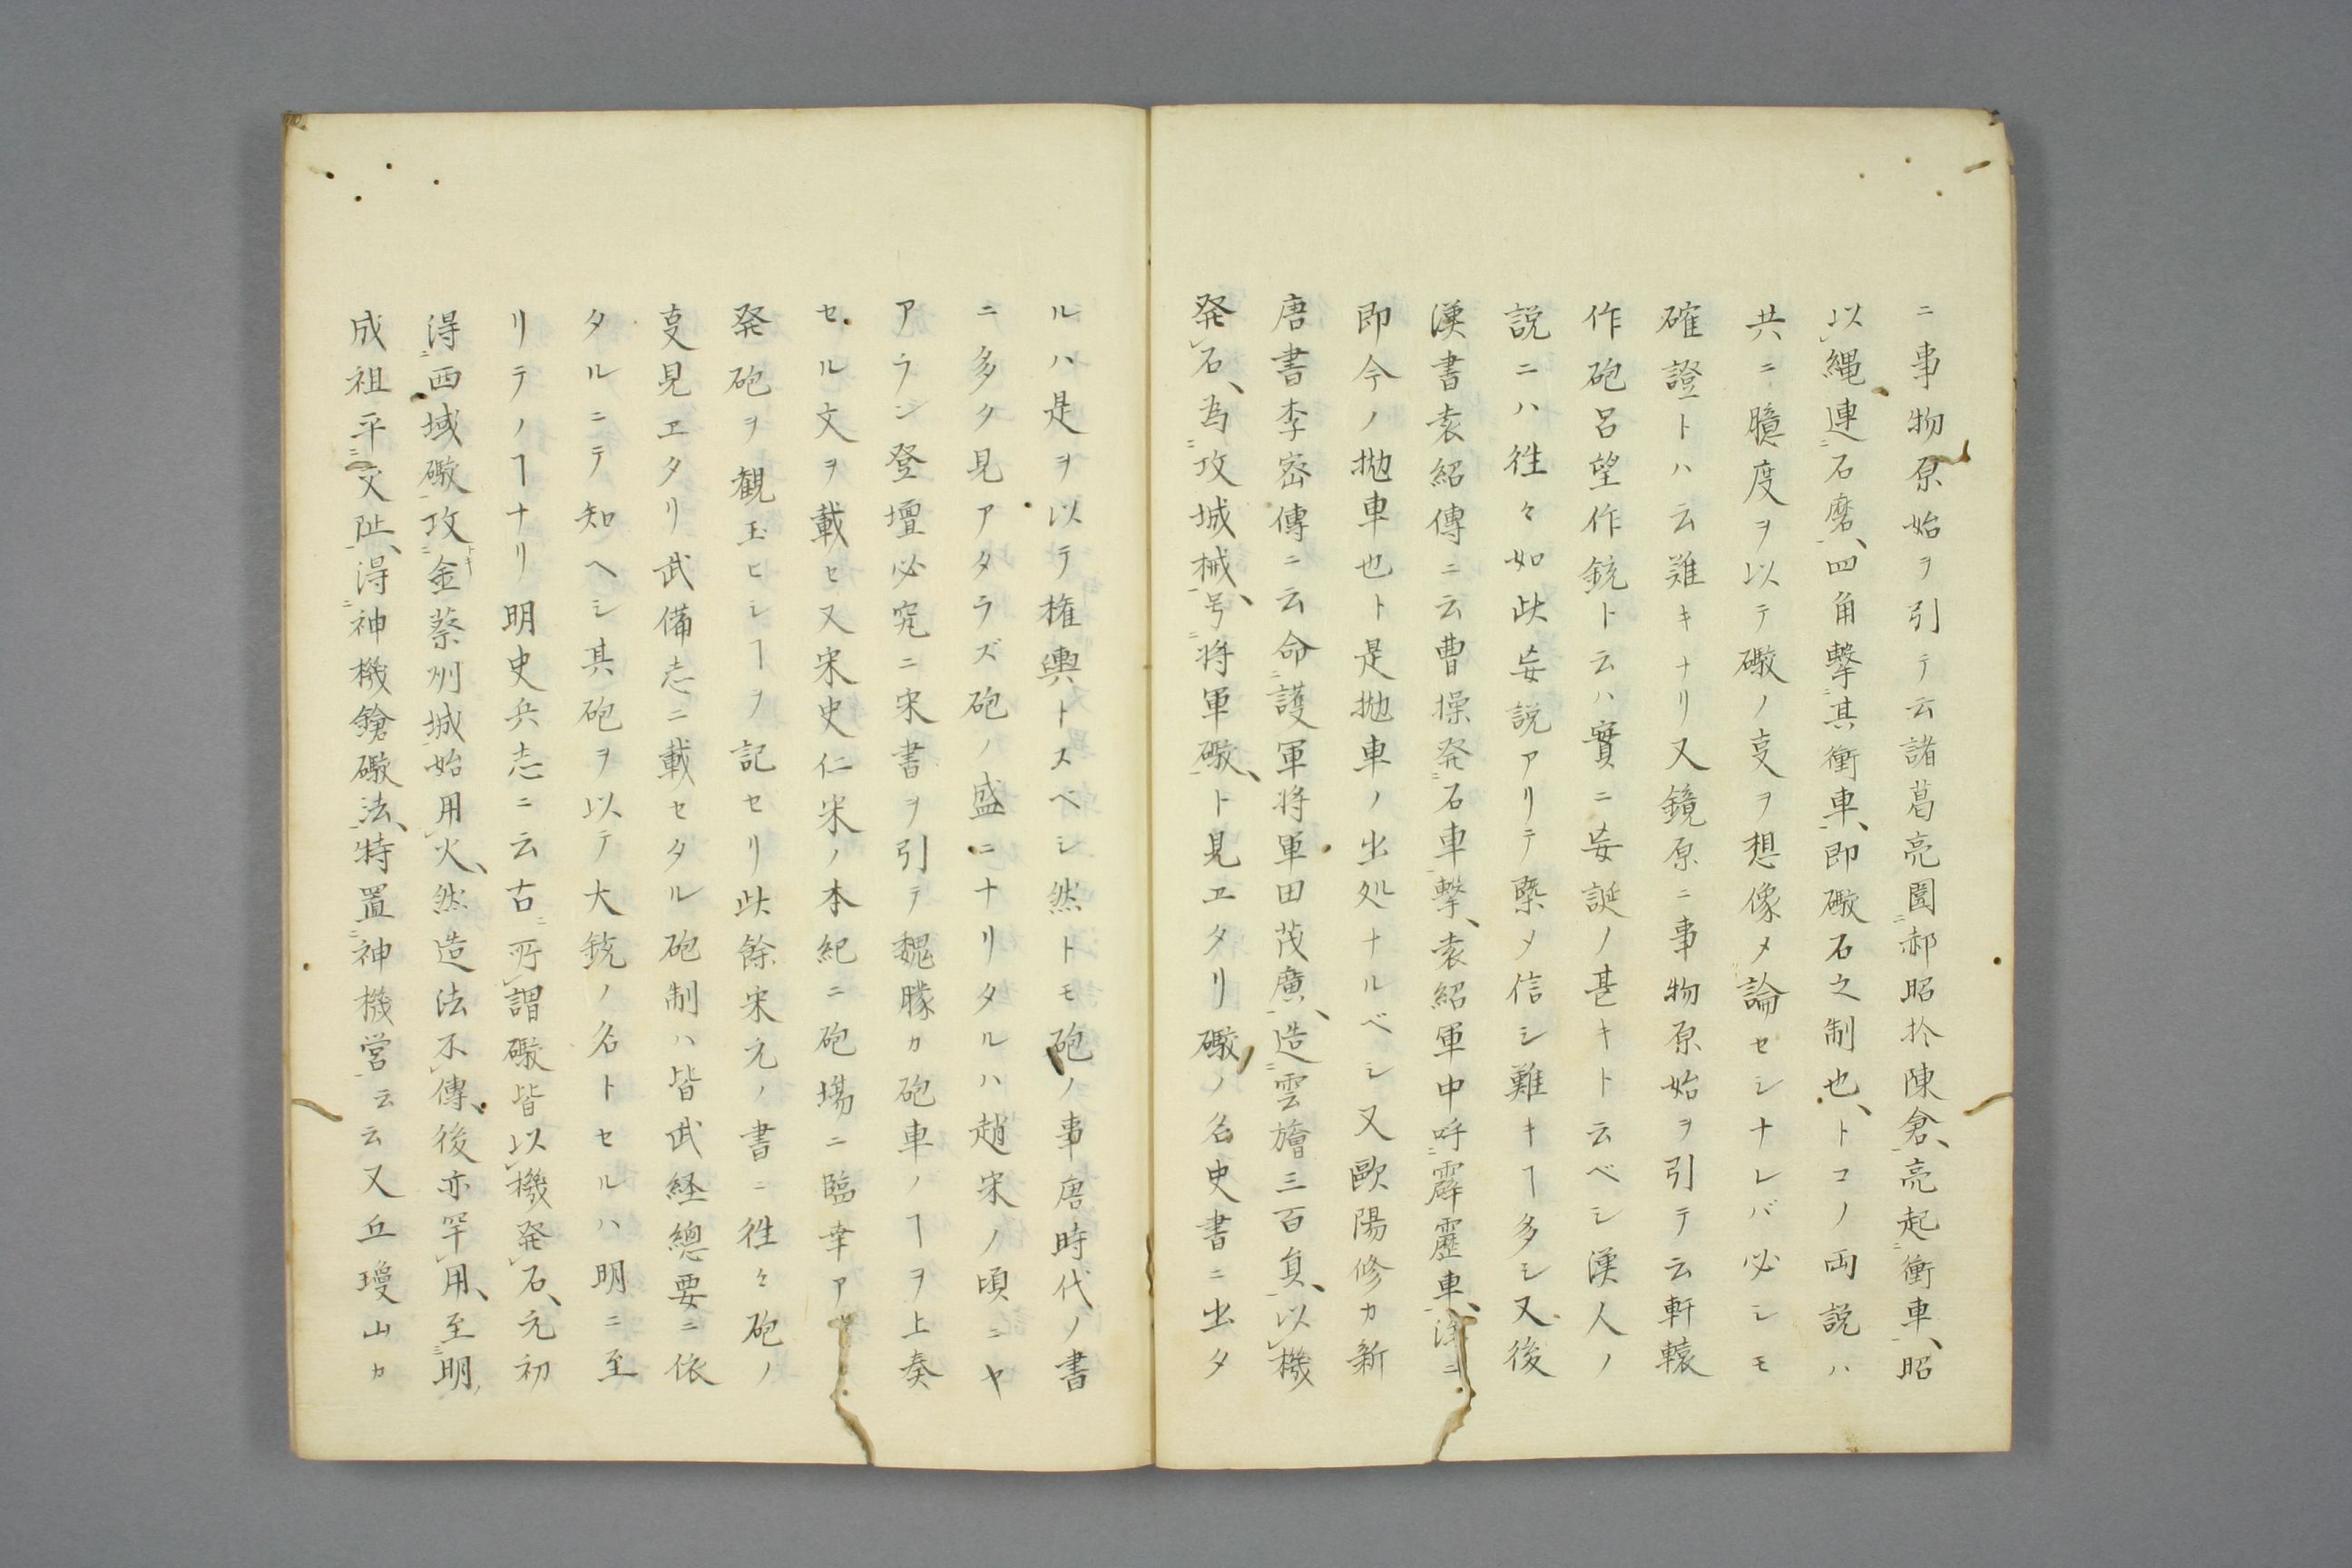 ニ事物原始ヲ引テ云諸葛亮圍郝昭於陳倉、亮起衝車、昭
以縄連石磨、四角撃其衝車、即礮石之制也、トコノ両説ハ
共ニ臆度ヲ以テ礮ノ叓ヲ想像メ論セシナレバ必シモ
確證トハ云難キナリ又鏡原ニ事物原始ヲ引テ云軒轅
作砲呂望作銃ト云ハ實ニ妄誕ノ甚キト云ベシ漢人ノ
説ニハ徃々如此妄説アリテ槩メ信シ難キヿ多シ又後
漢書袁紹傳ニ云曹操発石車撃、袁紹軍中呼霹靂車、注ニ
即今ノ拋車也ト是拋車ノ出処ナルベシ又歐陽修カ新
唐書李宻傳ニ云命護軍将軍田茂廣、造雲旝三百負、以機
発石、為攻城械、号将軍礮、ト見エタリ礮ノ名史書ニ出タ
ルハ是ヲ以テ権輿トスベシ然トモ砲ノ事唐時代ノ書
ニ多ク見アタラズ砲ノ盛ニナリタルハ趙宋ノ頃ニヤ
アラン登壇必究ニ宋書ヲ引テ魏勝カ砲車ノヿヲ上奏
セル文ヲ載セ又宋史仁宋ノ本紀ニ砲場ニ臨幸アリ
発砲ヲ観玉ヒシヿヲ記セリ此餘宋元ノ書ニ徃々砲ノ
叓見エタリ武備志ニ載セタル砲制ハ皆武経總要ニ依
タルニテ知ヘシ其砲ヲ以テ大銃ノ名トセルハ明ニ至
リテノヿナリ明史兵志ニ云古所謂礮皆以機発石、元初
得西域礮攻金蔡州城始用火、然造法不傳、後亦罕用、至明
成祖平交阯、得神機鎗礮法、特置神機営云云又丘瓊山カ